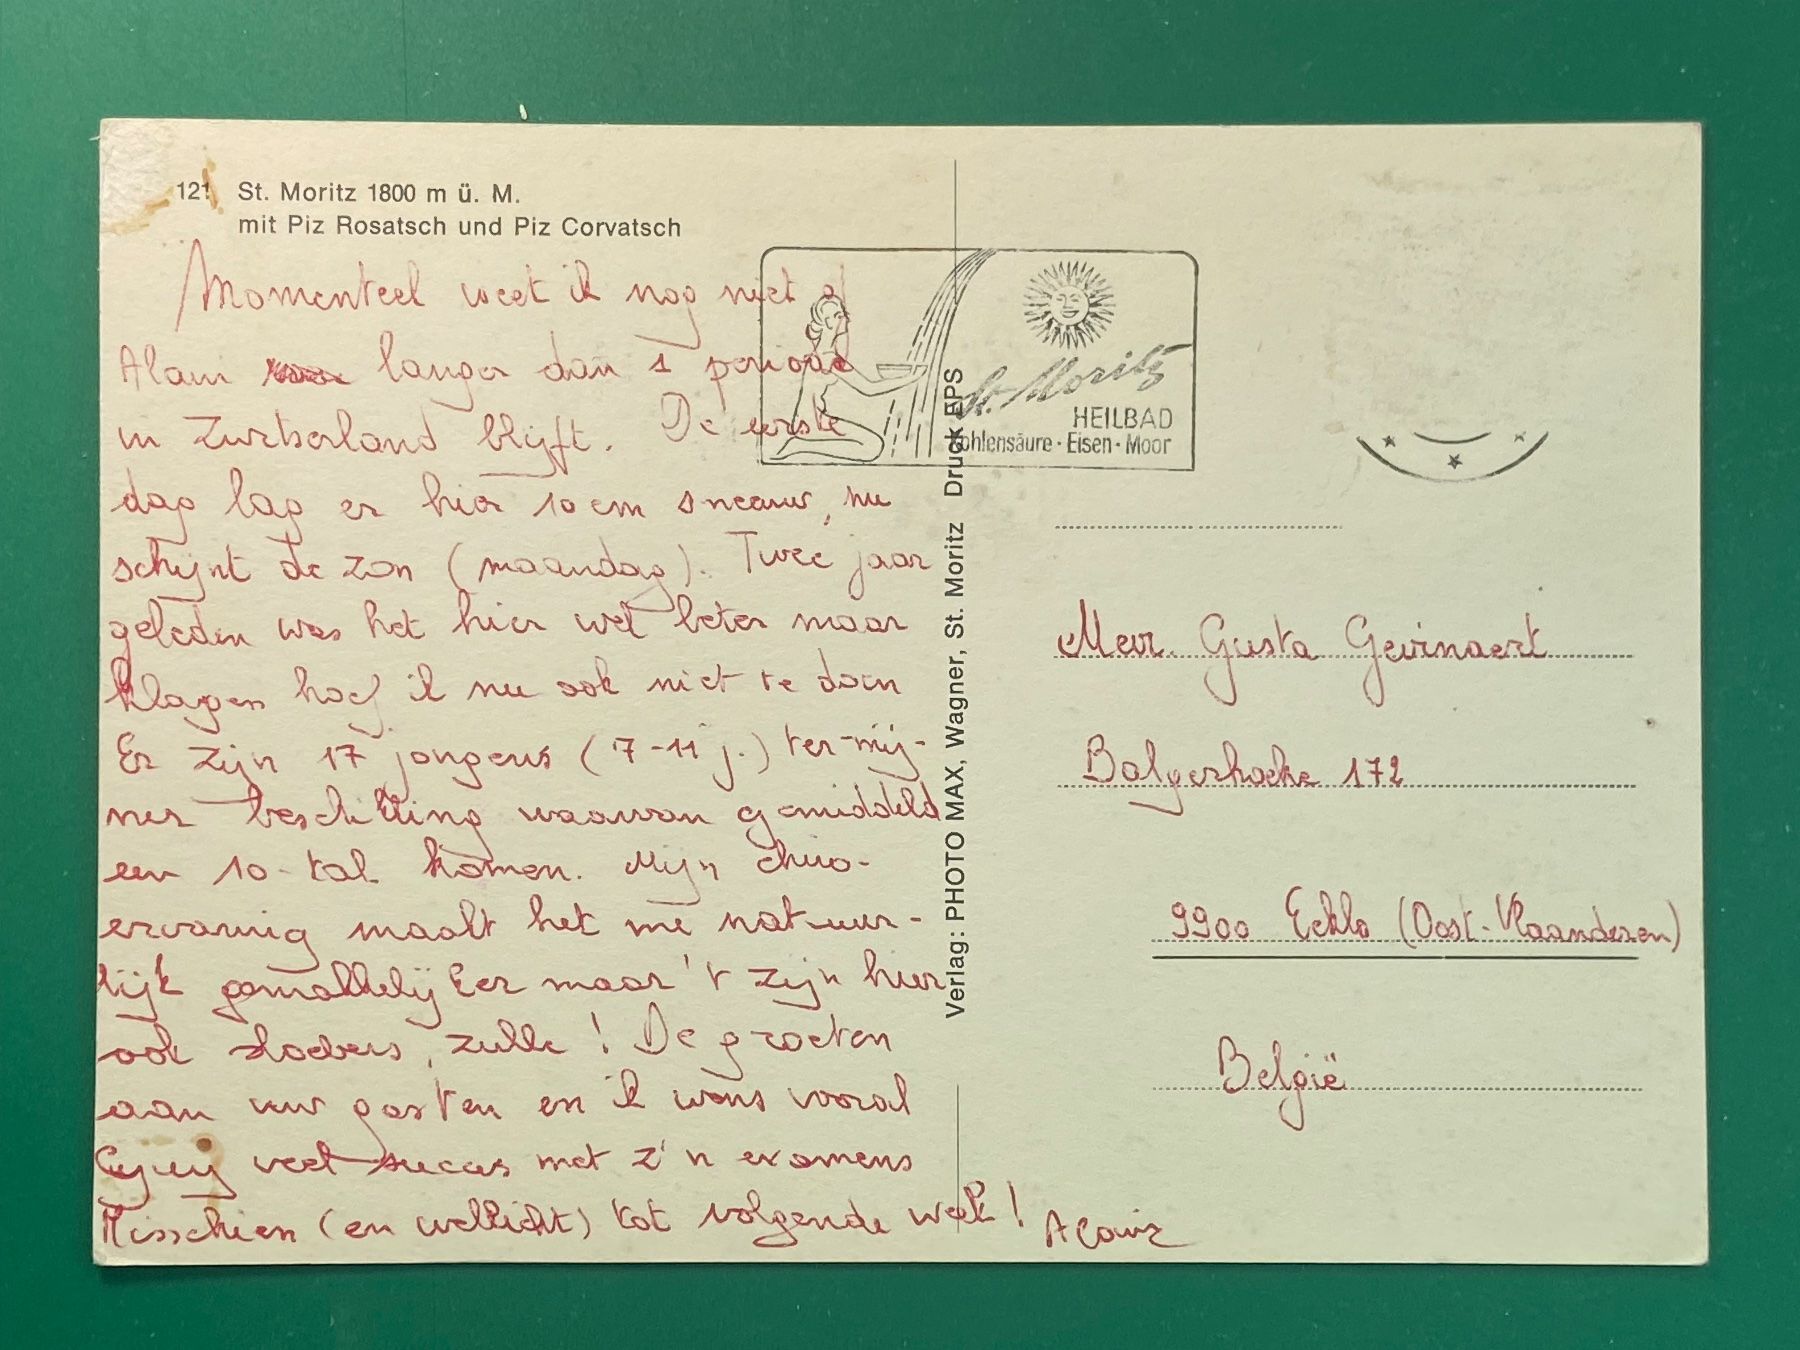 121 St. Moritz 1800 m ü. M.
mit Piz Rosatsch und Piz Corvatsch
Momenteel weet ik nog niet of
Alain langer dan 1 periode
in Zwitserland blijft. De eerste
dag lag er hier 10 cm sneeuw, nu
schijnt de zon (maandag). Twee jaar
geleden was het hier wel beter maar
klagen hoef ik nu ook niet te doen
Er zijn 17 jongens (7-11 j.) ter mij-
ner beschikking waarvan gemiddeld
een 10-tal komen. Mijn chiro-
ervaring maakt het me natuur-
lijk gemakkelijker maar 't zijn hier
ook sloebers, zulle! De groeten
aan uw gasten en ik wens vooral
Guy veel succes met z'n examens
Misschien (en wellicht) tot volgende week! Alain
St. Moritz
HEILBAD
Kohlensäure · Eisen · Moor
Verlag: PHOTO MAX, Wagner, St. Moritz Druck EPS
Mevr. Gusta Gevinaert
Balgerhoeke 172
9900 Eeklo (Oost-Vlaanderen)
België